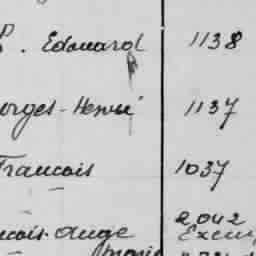 P. Edouard 1138
orges-Henri 1137
Francois 1037
ncois-Ange 2042